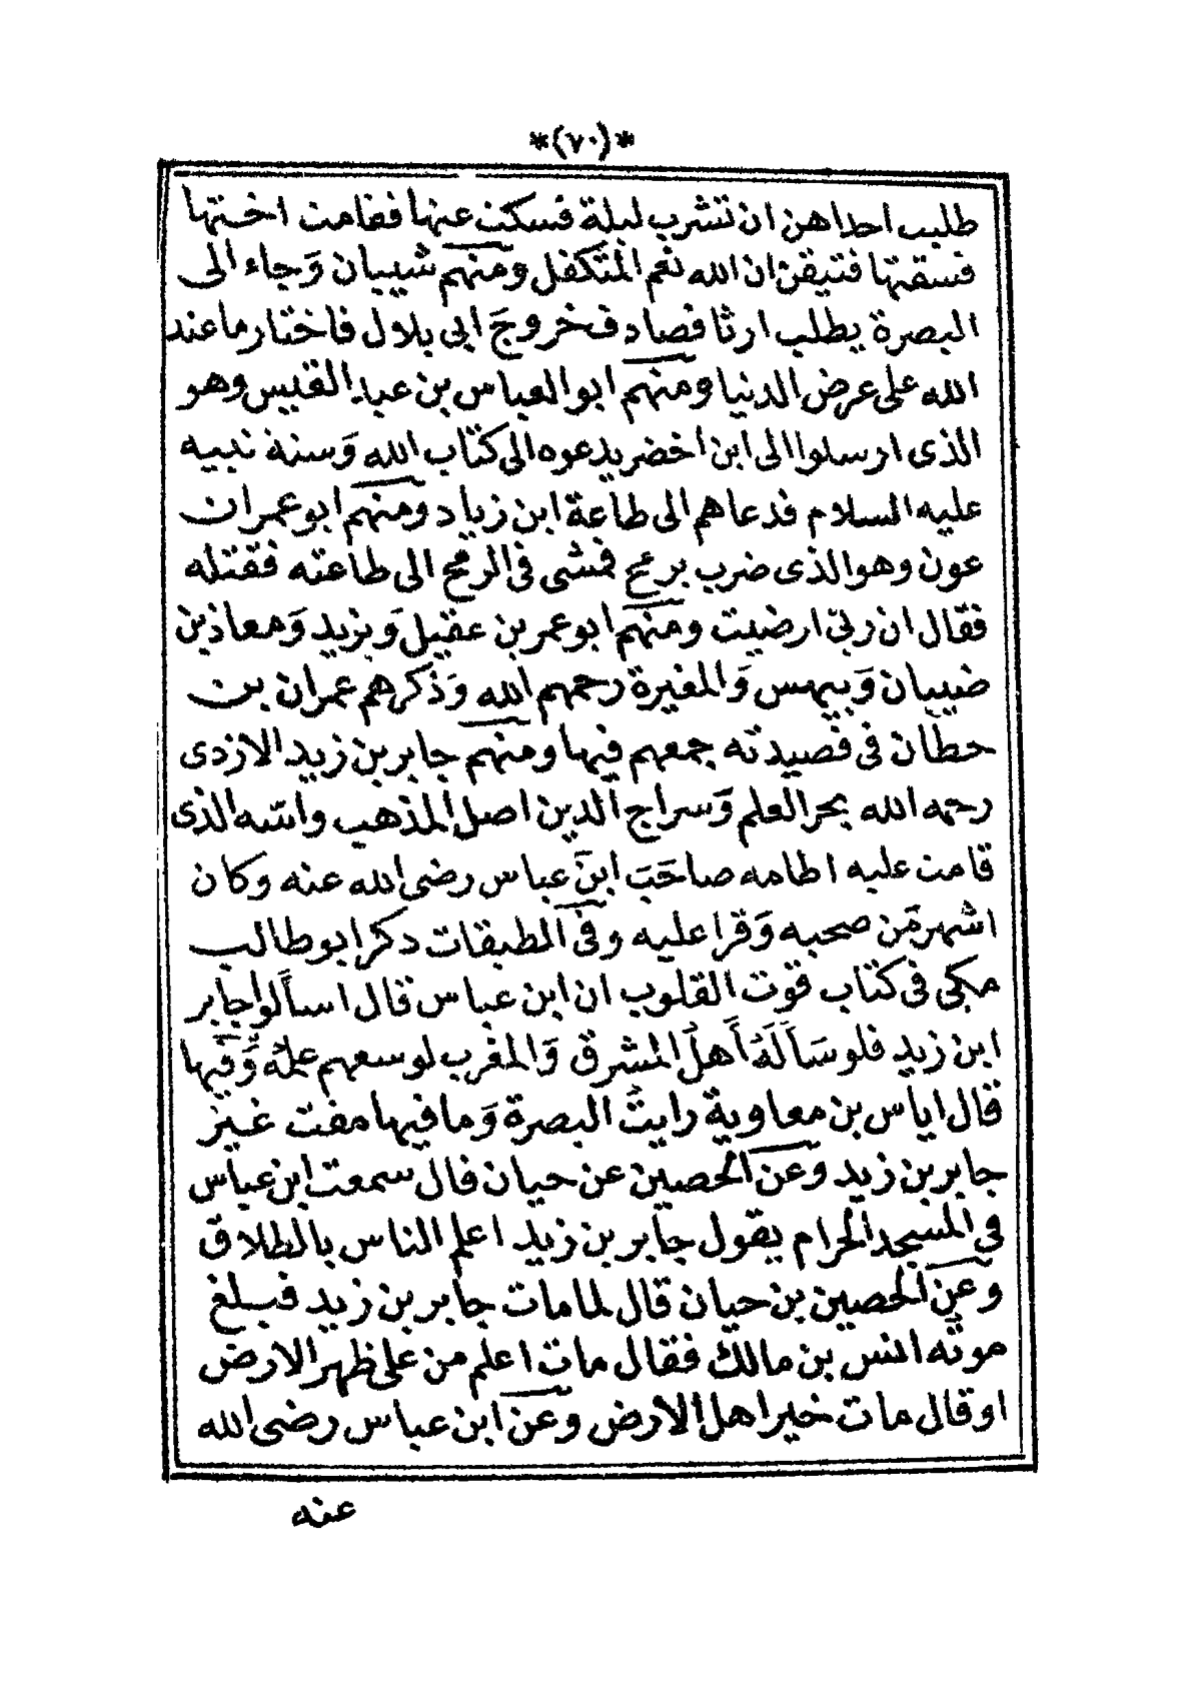 *(٧٠)*
طلبت احداهن ان تشرب ليلة فسكت عنها فقامت اختها
فسقتها فتيقن ان الله نعم المتكفل ومنهم شيبان وَجاء الى
البصرة يطلب ارثا فصادف خروجَ ابى بلال فاختار ما عند
الله على عرض الدنيا ومنهم ابو العباس بن عبد القيس وهو
الذى ارسلوا الى ابن اخضر يدعوه الى كتاب الله وَسنة نبيه
عليه السلام فدعاهم الى طاعة ابن زياد ومنهم ابو عمران
عون وهو الذى ضرب برمح فمشى فى الرمح الى طاعنه فقتله
فقال ان ربى ارضيت ومنهم ابو عمر بن عقيل وَيزيد وَمعاذ بن
ضبيان وَبيهس وَالمغيرة رحمهم الله وَذكرهم عمران بن
حطان فى قصيدته جمعهم فيها ومنهم جابر بن زيد الازدى
رحمه الله بحر العلم وَسراج الدين اصل المذهب واسه الذى
قامت عليه اطامه صاحَبَ ابنَ عباس رضى الله عنه وكان
اشهر مَن صحبه وَقرا عليه وفى الطبقات ذكر ابو طالب
مكى فى كتاب قوت القلوب ان ابن عباس قال اسألوا جابر
ابن زيد فلو سَألَهُ أَهلُ المشرق وَالمغرب لوسعهم علمُه وَفيها
قال اياس بن معاوية رايتُ البصرة وَما فيها مفت غير
جابر بن زيد وَعن الحصين عن حيان قال سمعت ابن عباس
فى المسجد الحرام يقول جابر بن زيد اعلم الناس بالطلاق
وعن الحصين بن حيان قال لما مات جابر بن زيد فبلغ
موته انس بن مالك فقال مات اعلم من على ظهر الارض
او قال مات خير اهل الارض وعن ابن عباس رضى الله
عنه